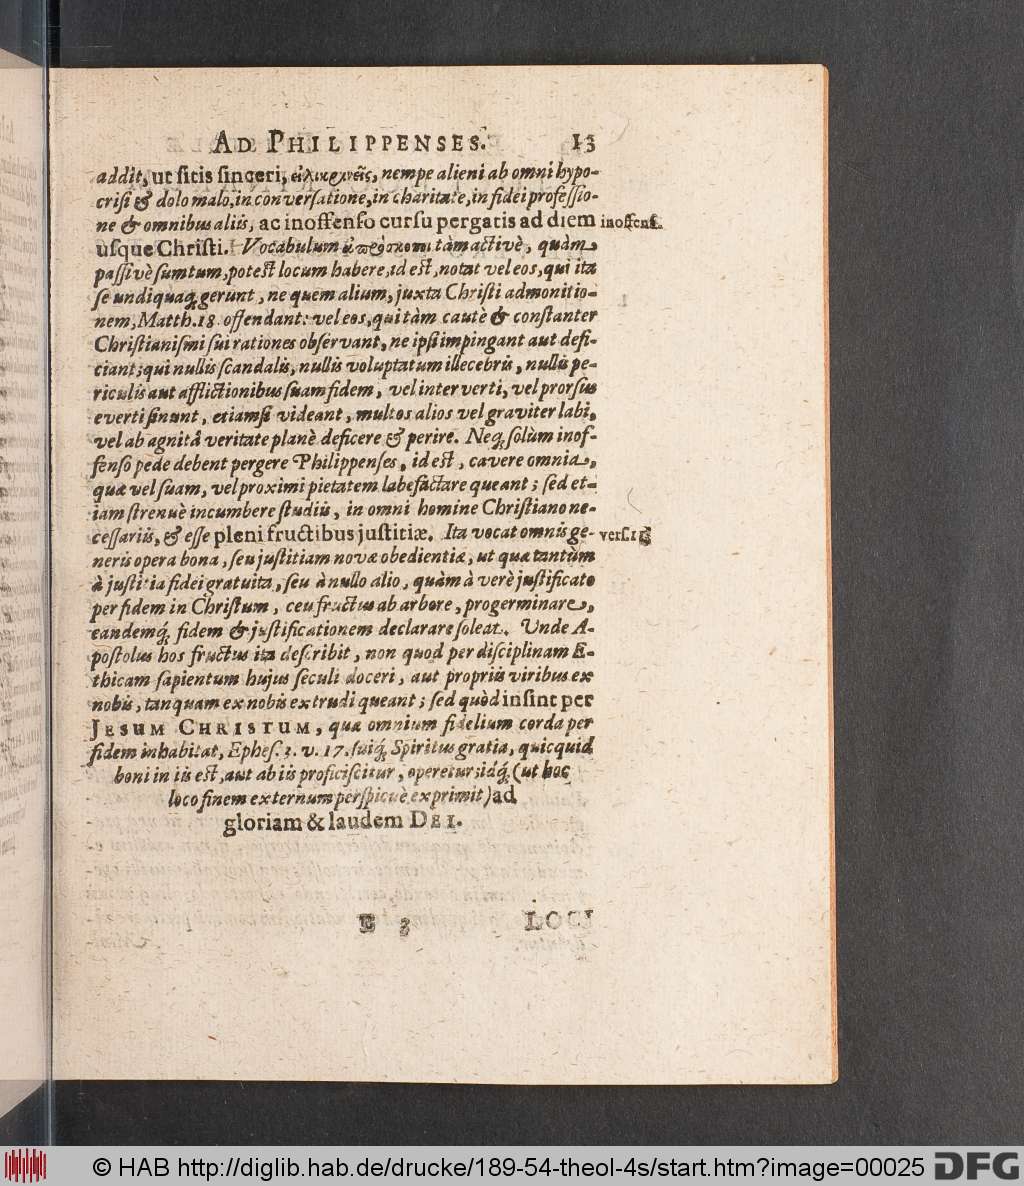 AD PHILIPPENSES. 13
addit, ut sitis sinceri, εἰλικρινεῖς, nempe alieni ab omni hypo-
crisi & dolo malo, in conversatione, in charitate, in fidei professio-
ne & omnibus aliis, ac inoffenso cursu pergatis ad diem inoffens.
usque Christi. Vocabulum ἀπρόσκοποι tàm activè, quàm
passivè sumtum, potest locum habere, id est, notat vel eos, qui ita
se undiquaq; gerunt, ne quem alium, juxta Christi admonitio-
nem, Matth. 18. offendant: vel eos, qui tàm cautè & constanter
Christianismi sui rationes observant, ne ipsi impingant aut defi-
ciant; qui nullis scandalis, nullis voluptatum illecebris, nullis pe-
riculis aut afflictionibus suam fidem, vel interverti, vel prorsus
everti sinunt, etiamsi videant, multos alios vel graviter labi,
vel ab agnitâ veritate planè deficere & perire. Neq; solùm inof-
fenso pede debent pergere Philippenses, id est, cavere omnia,
quæ vel suam, vel proximi pietatem labefactare queant; sed et-
iam strenuè incumbere studiis, in omni homine Christiano ne-
cessariis, & esse pleni fructibus justitiæ. Ita vocat omnis ge- vers.11
neris opera bona, seu justitiam novæ obedientiæ, ut quæ tantùm
à justitia fidei gratuita, seu à nullo alio, quàm à verè justificato
per fidem in Christum, ceu fructus ab arbore, progerminare,
eandemq; fidem & justificationem declarare soleat. Unde A-
postolus hos fructus ita describit, non quod per disciplinam E-
thicam sapientum hujus seculi doceri, aut propriis viribus ex
nobis, tanquam ex nobis extrudi queant; sed quòd insint per
JESUM CHRISTUM, quæ omnium fidelium corda per
fidem inhabitat, Ephes. 3. v. 17. suiq; Spiritus gratia, quicquid
boni in iis est, aut ab iis proficiscitur, operetur; idq; (ut hoc
loco finem externum perspicuè exprimit) ad
gloriam & laudem DEI.
E 3 LOCI
© HAB http://diglib.hab.de/drucke/189-54-theol-4s/start.htm?image=00025 DFG